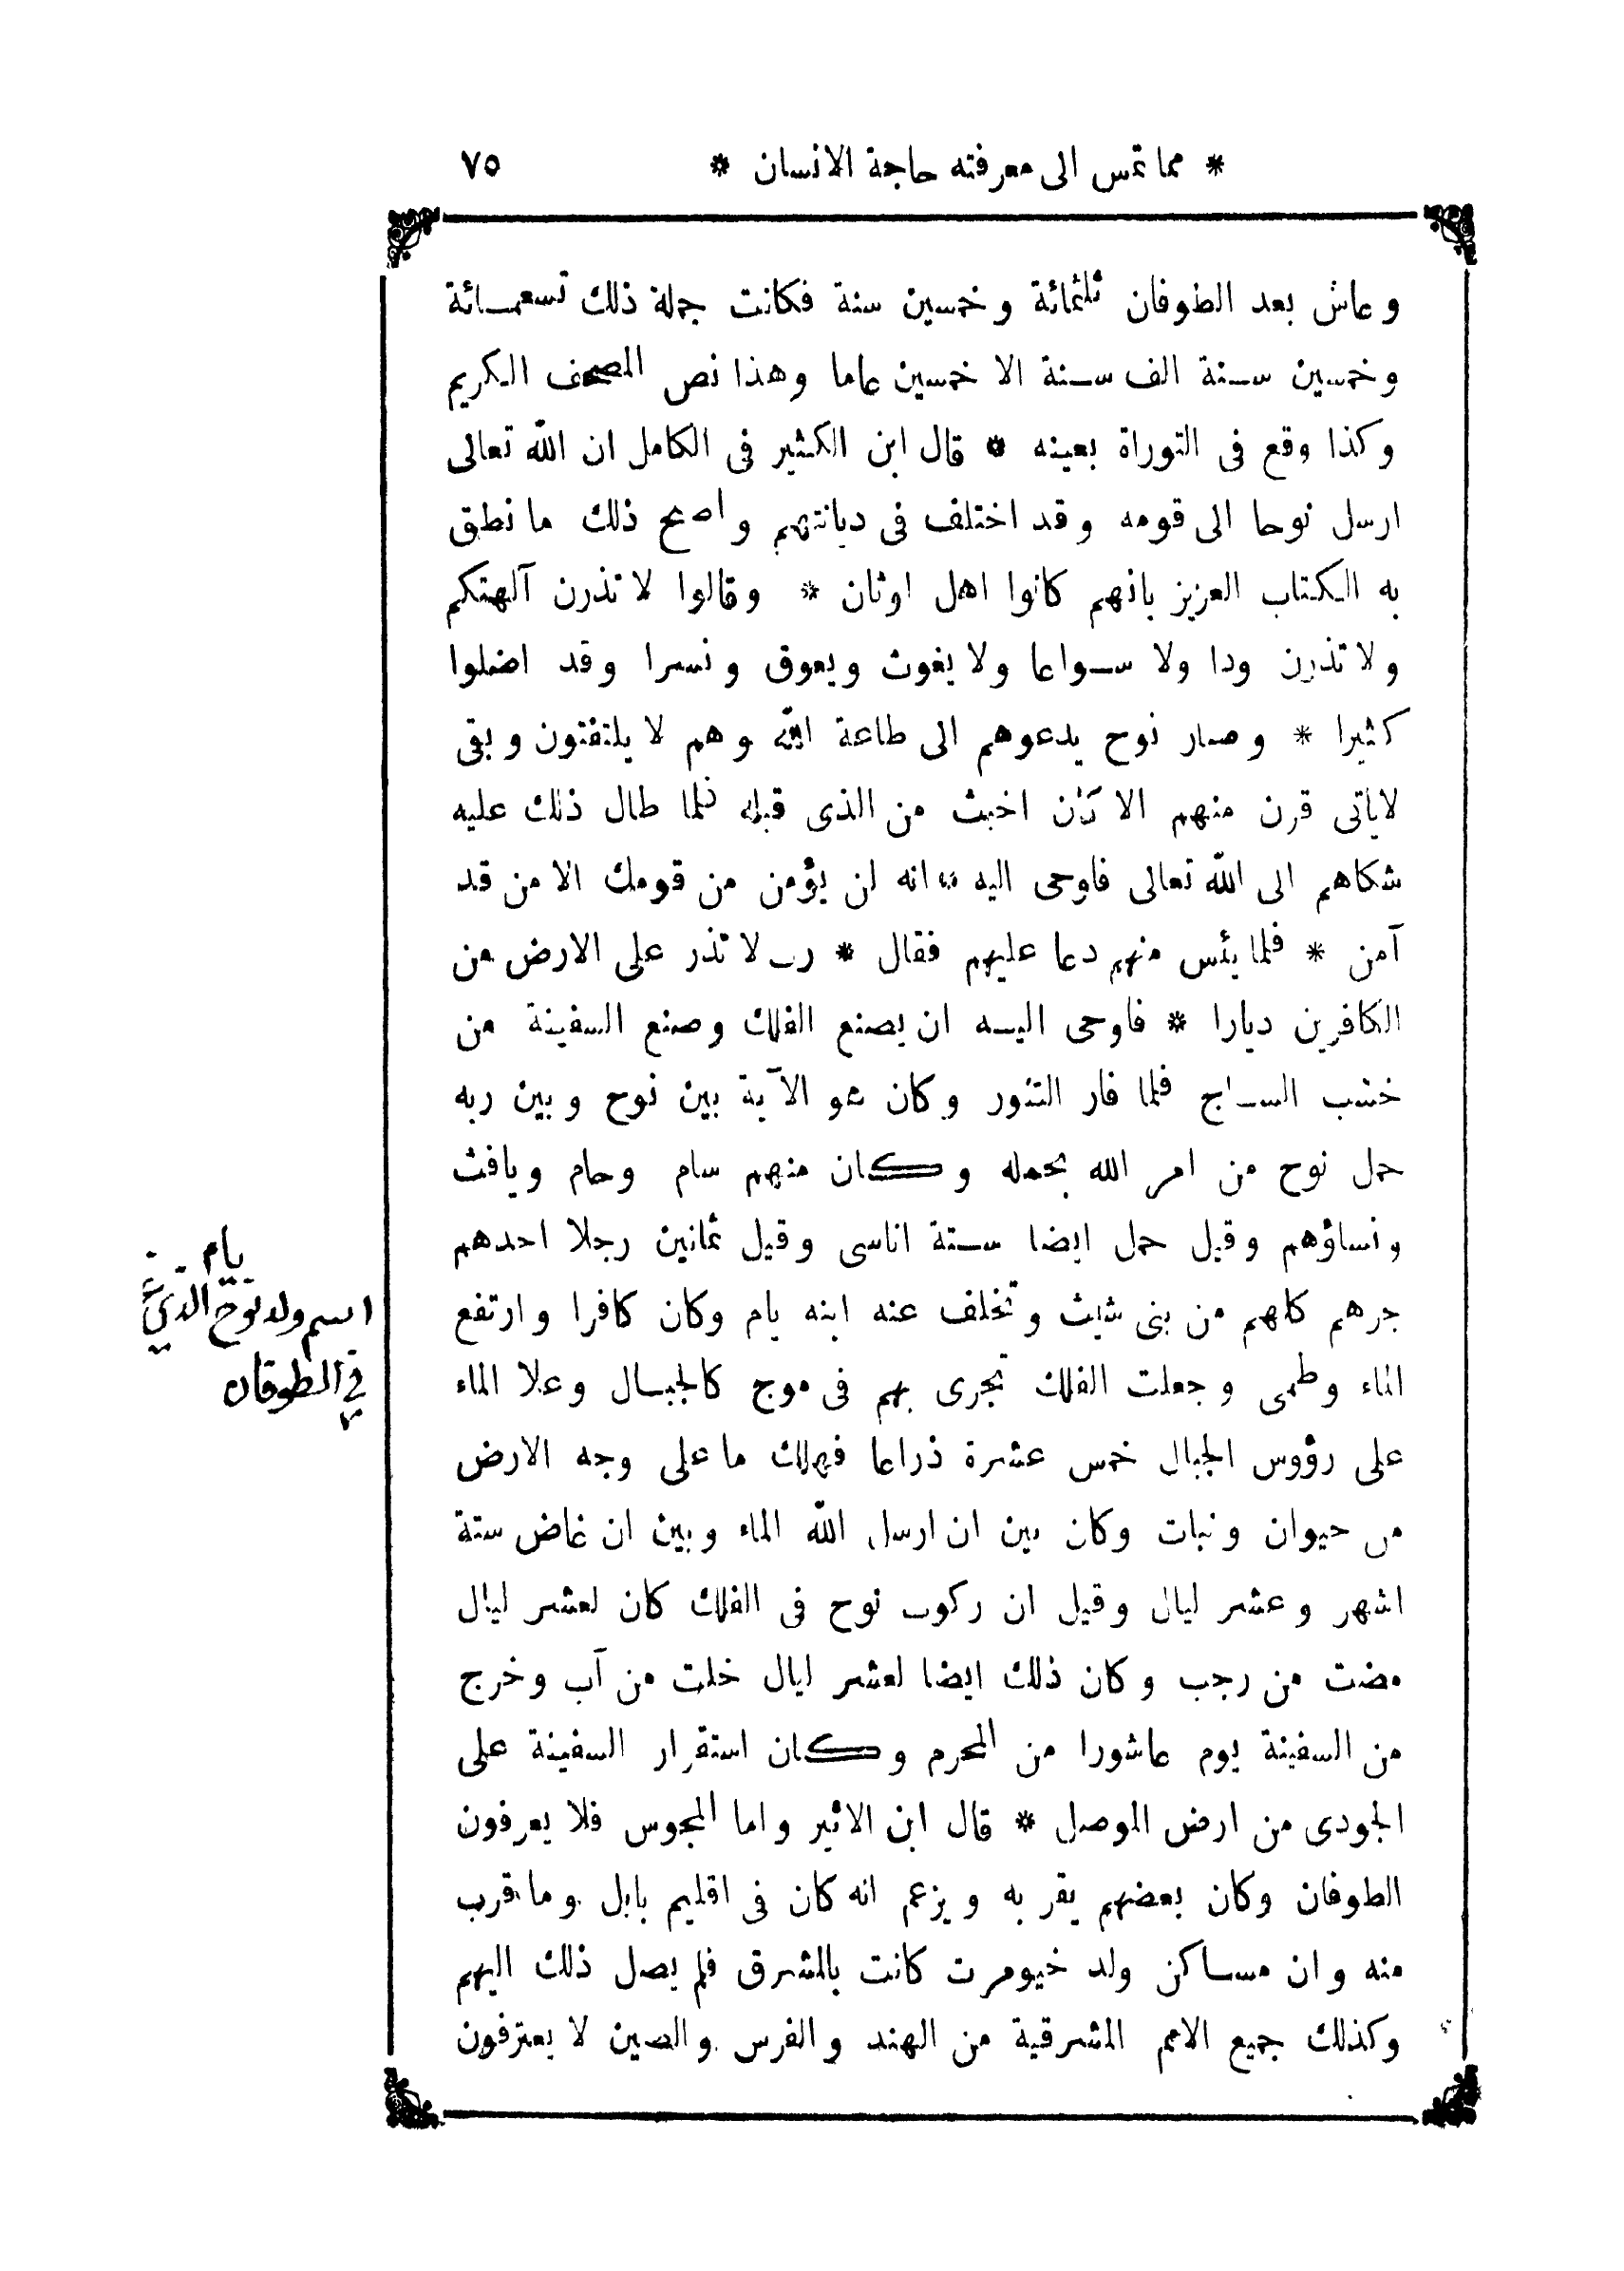 * مما تمس الى معرفته حاجة الانسان * ٧٥
وعاش بعد الطوفان ثلثمائة وخمسين سنة فكانت جملة ذلك تسعمائة
وخمسين سنة الف سنة الا خمسين عاما وهذا نص المصحف الكريم
وكذا وقع فى التوراة بعينه * قال ابن الكثير فى الكامل ان الله تعالى
ارسل نوحا الى قومه وقد اختلف فى ديانتهم واصح ذلك ما نطق
به الكتاب العزيز بانهم كانوا اهل اوثان * وقالوا لا تذرن آلهتكم
ولا تذرن ودا ولا سواعا ولا يغوث ويعوق ونسرا وقد اضلوا
كثيرا * وصار نوح يدعوهم الى طاعة الله وهم لا يلتفتون وبقى
لاياتى قرن منهم الا كان اخبث من الذى قبله فلما طال ذلك عليه
شكاهم الى الله تعالى فاوحى اليه * انه لن يؤمن من قومك الا من قد
آمن * فلما يئس منهم دعا عليهم فقال * رب لا تذر على الارض من
الكافرين ديارا * فاوحى اليه ان يصنع الفلك وصنع السفينة من
خشب الساج فلما فار التنور وكان هو الآية بين نوح وبين ربه
حمل نوح من امر الله بحمله وكان منهم سام وحام ويافث
ونساؤهم وقيل حمل ايضا ستة اناسى وقيل ثمانين رجلا احدهم
جرهم كلهم من بنى شيث وتخلف عنه ابنه يام وكان كافرا وارتفع
الماء وطمى وجعلت الفلك تجرى بهم فى موج كالجبال وعلا الماء
على رؤوس الجبال خمس عشرة ذراعا فهلك ما على وجه الارض
من حيوان ونبات وكان بين ان ارسل الله الماء وبين ان غاض ستة
اشهر وعشر ليال وقيل ان ركوب نوح فى الفلك كان لعشر ليال
مضت من رجب وكان ذلك ايضا لعشر ليال خلت من آب وخرج
من السفينة يوم عاشورا من المحرم وكان استقرار السفينة على
الجودى من ارض الموصل * قال ابن الاثير واما المجوس فلا يعرفون
الطوفان وكان بعضهم يقر به ويزعم انه كان فى اقليم بابل وما قرب
منه وان مساكن ولد خيومرت كانت بالمشرق فلم يصل ذلك اليهم
وكذلك جميع الامم المشرقية من الهند والفرس والصين لا يعترفون
يام
اسم ولد نوح الذي
في الطوفان